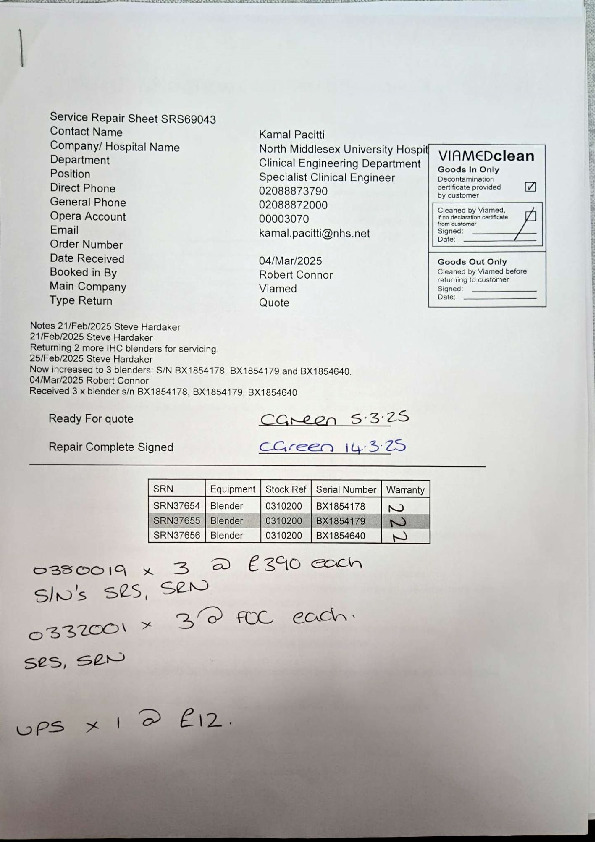 Service Repair Sheet SRS69043
Contact Name Kamal Pacitti
Company/ Hospital Name North Middlesex University Hospit
Department Clinical Engineering Department
Position Specialist Clinical Engineer
Direct Phone 02088873790
General Phone 02088872000
Opera Account 00003070
Email kamal.pacitti@nhs.net
Order Number
Date Received 04/Mar/2025
Booked in By Robert Connor
Main Company Viamed
Type Return Quote
VIAMEDclean
Goods In Only
Decontamination
certificate provided
by customer
Cleaned by Viamed,
if no declaration certificate
from customer
Signed:
Date:
Goods Out Only
Cleaned by Viamed before
returning to customer
Signed:
Date:
Notes 21/Feb/2025 Steve Hardaker
21/Feb/2025 Steve Hardaker
Returning 2 more IHC blenders for servicing.
25/Feb/2025 Steve Hardaker
Now increased to 3 blenders: S/N BX1854178, BX1854179 and BX1854640.
04/Mar/2025 Robert Connor
Received 3 x blender s/n BX1854178, BX1854179, BX1854640
Ready For quote CGreen 5.3.25
Repair Complete Signed CGreen 14.3.25
SRN Equipment Stock Ref Serial Number Warranty
SRN37654 Blender 0310200 BX1854178 N
SRN37655 Blender 0310200 BX1854179 N
SRN37656 Blender 0310200 BX1854640 N
0380019 x 3 @ £390 each
S/N's SRS, SRN
0332001 x 3 @ FOC each.
SRS, SRN
UPS x 1 @ £12.